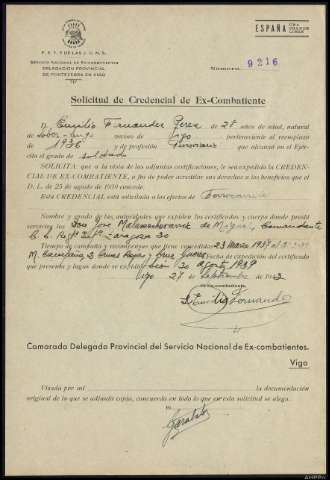 ESPAÑA UNA GRANDE LIBRE
F. E. T. Y DE LAS J. O. N. S.
SERVICIO NACIONAL DE EXCOMBATIENTES
DELEGACIÓN PROVINCIAL
DE PONTEVEDRA EN VIGO
NÚMERO 9216
Solicitud de Credencial de Ex-Combatiente
D. Emilio Fernández Pérez de 28 años de edad, natural
de vecino de Vigo, perteneciente al reemplazo
de 1936 y de profesión que alcanzó en el Ejér-
cito el grado de soldado
SOLICITA que a la vista de las adjuntas certificaciones, le sea expedida la CREDEN-
CIAL DE EX-COMBATIENTE, a fin de poder acreditar sus derechos a los beneficios que el
D. L. de 25 de agosto de 1939 concede.
Esta CREDENCIAL, está solicitada a los efectos de
Nombre y grado de las autoridades que expiden los certificados y cuerpo donde presta
servicios los Don José de Comandante
Zaragoza 30
Tiempo de combate y recompensas que tiene concedidas 23 Marzo 1937
M. Campaña, 2 Cruces Rojas y Cruz Guerra Fecha de expedición del certificado
que presenta y lugar donde es expedido León 30 Agosto 1939
Vigo 27 de Septiembre de 1943
El excombatiente,
Emilio Fernández
Camarada Delegado Provincial del Servicio Nacional de Ex-combatientes.
Vigo
Visada por mí la documentación
original de la que se adjunta copia, concuerda en todo lo que en esta solicitud se alega.